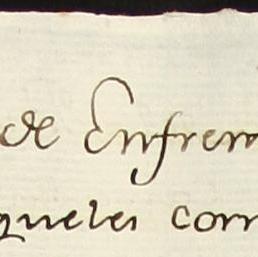 de Enfrem
queles corr